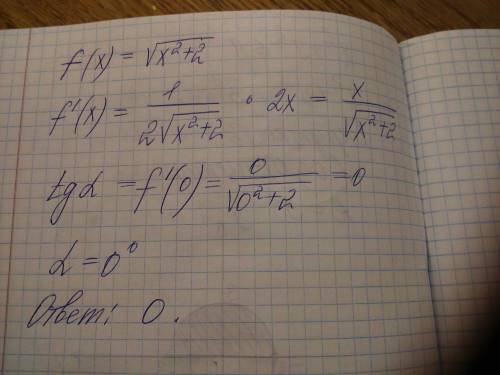 f(x) = √(x²+2)
f'(x) = 1/(2√(x²+2)) · 2x = x/√(x²+2)
tg α = f'(0) = 0/√(0²+2) = 0
α = 0°
Ответ: 0.